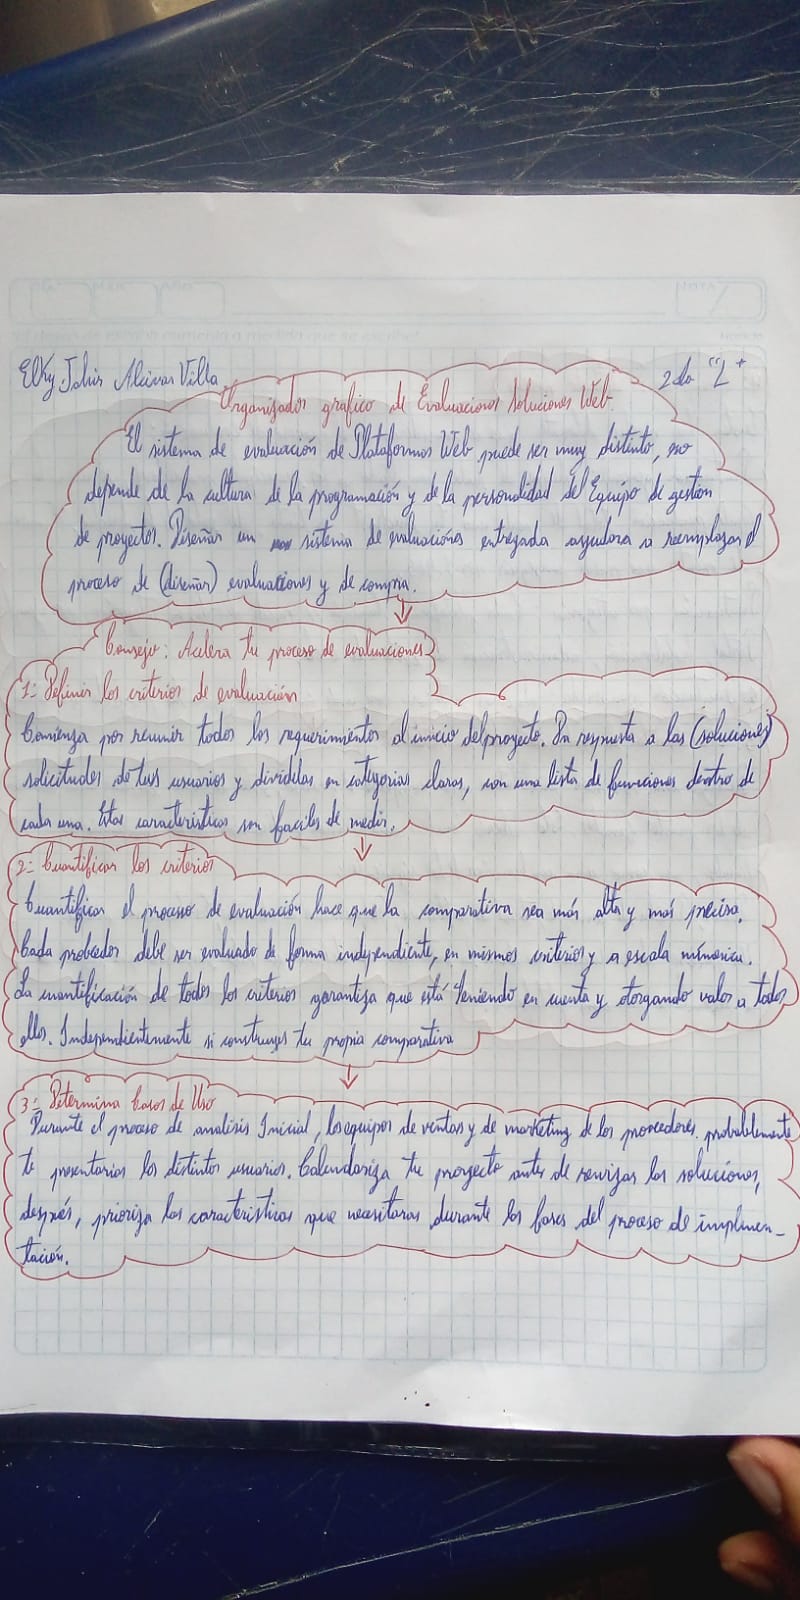 Elky Jahir Alcivar Villa 2do "L"
Organizador grafico de Evaluaciones Soluciones Web
El sistema de evaluación de Plataformas Web puede ser muy distinto, eso
depende de la cultura de la programación y de la personalidad del Equipo de gestion
de proyectos. Diseñar un sistema de evaluaciónes entregada ayudara a reemplazar el
proceso de (diseñar) evaluaciones y de compra.
Consejo: Acelera tu proceso de evaluaciones
1- Definir los criterios de evaluación
Comienza por reunir todos los requerimientos al inicio del proyecto. En respuesta a las (soluciones)
solicitudes de tus usuarios y dividelas en categorias claras, con una lista de funciones dentro de
cada una. Estas caracteristicas son faciles de medir.
2- Cuantificar los criterios
Cuantificar el proceso de evaluación hace que la comparativa sea más alta y más precisa.
Cada probeedor debe ser evaluado de forma independiente, en mismos criterios y a escala númerica.
La cuantificación de todos los criterios garantiza que está teniendo en cuenta y otorgando valor a todos
ellos. Independientemente si construyes tu propia comparativa
3- Determina Casos de Uso
Durante el proceso de analisis Inicial, los equipos de ventas y de marketing de los proveedores probablemente
te presentarios los distintos usuarios. Calendariza tu proyecto antes de revizar las soluciones,
después, prioriza las caracteristicas que necesitaras durante las fases del proceso de implemen-
tación.